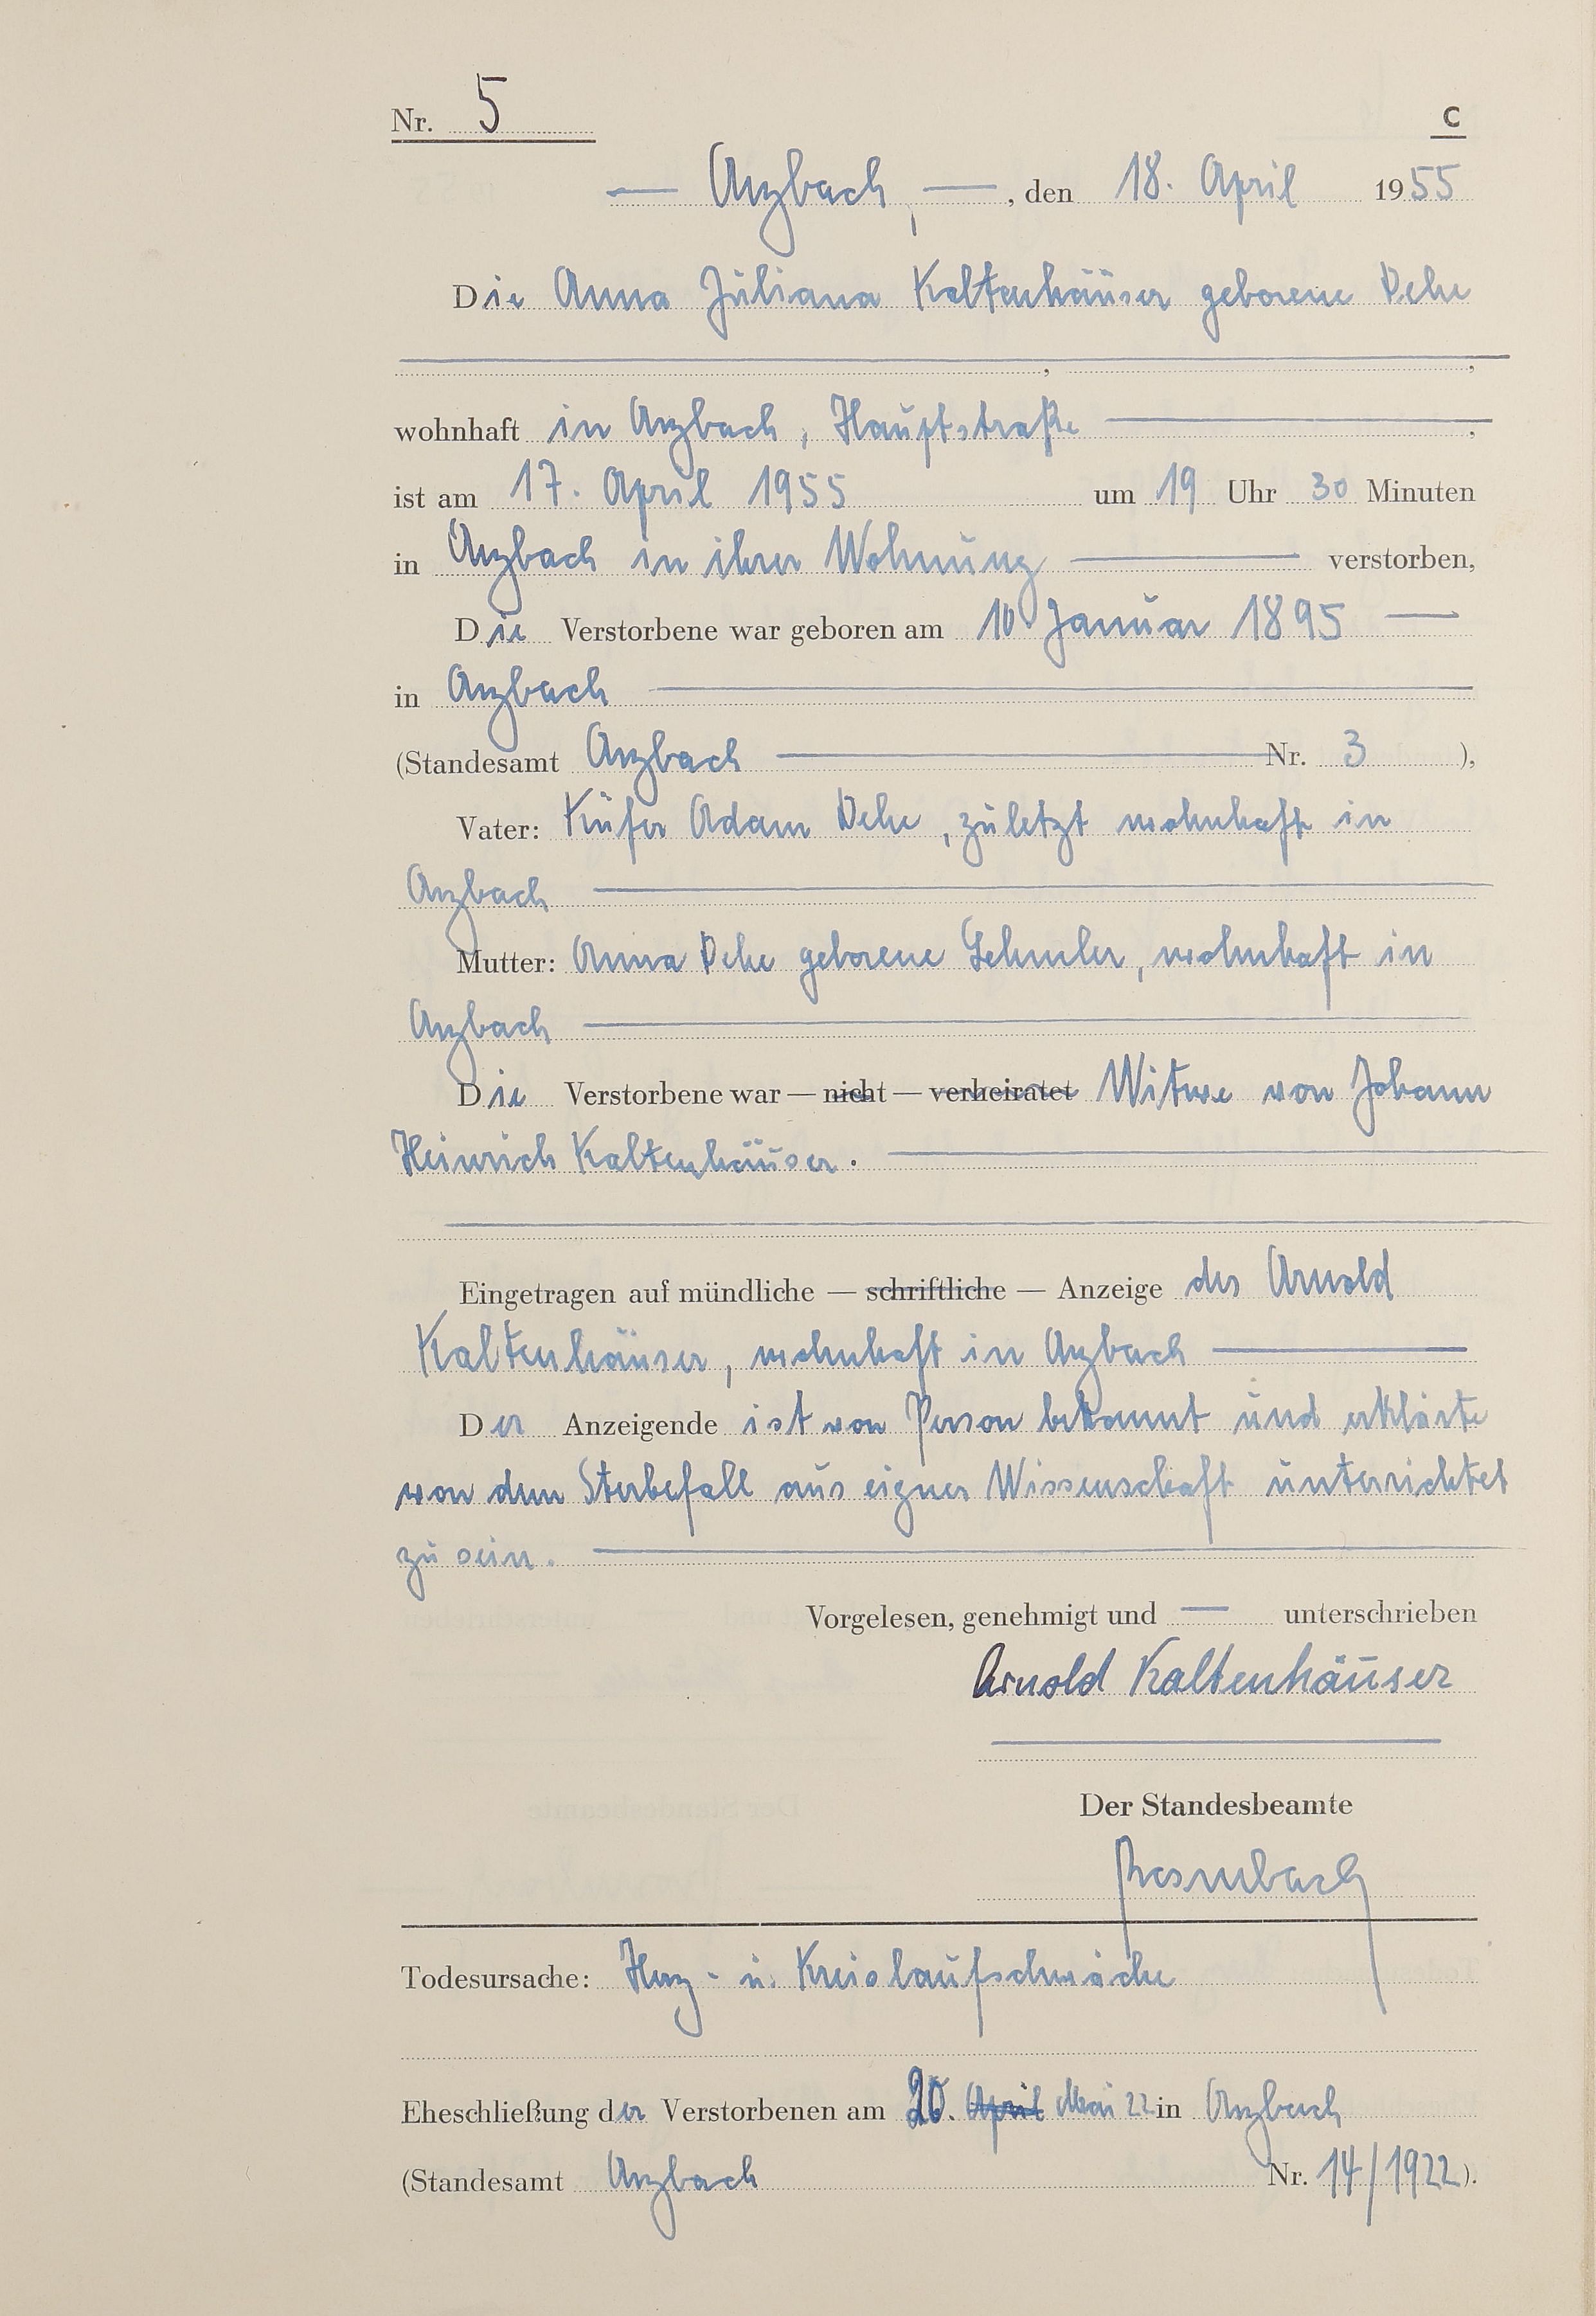 Nr. 5
C
— Arzbach, —, den 18. April 1955
Die Anna Juliana Kaltenhäuser geborene Dehe
wohnhaft in Arzbach, Hauptstraße —,
ist am 17. April 1955 um 19 Uhr 30 Minuten
in Arzbach in ihrer Wohnung — verstorben,
Die Verstorbene war geboren am 10 Januar 1895 —
in Arzbach —
(Standesamt Arzbach — Nr. 3 ),
Vater: Küfer Adam Dehe, zuletzt wohnhaft in
Arzbach —
Mutter: Anna Dehe geborene Lehmler, wohnhaft in
Arzbach —
Die Verstorbene war — nicht — verheiratet Witwe von Johann
Heinrich Kaltenhäuser. —
Eingetragen auf mündliche — schriftliche — Anzeige des Arnold
Kaltenhäuser, wohnhaft in Arzbach —
Der Anzeigende ist von Person bekannt und erklärte
von dem Sterbefall aus eigner Wissenschaft unterrichtet
zu sein. —
Vorgelesen, genehmigt und — unterschrieben
Arnold Kaltenhäuser
Der Standesbeamte
Todesursache: Herz- u. Kreislaufschwäche
Eheschließung der Verstorbenen am 20. April Mai 22 in Arzbach
(Standesamt Arzbach Nr. 14/1922).